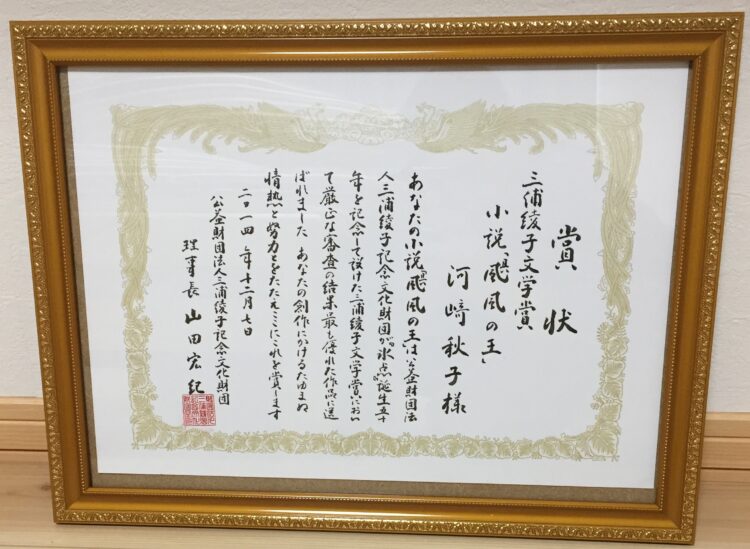 賞状
三浦綾子文学賞
小説「颶風の王」
河﨑秋子様
あなたの小説「颶風の王」は公益財団法
人三浦綾子記念文化財団が「氷点」誕生五十
年を記念して設けた三浦綾子文学賞におい
て厳正な審査の結果最も優れた作品に選
ばれました あなたの創作にかけるたゆまぬ
情熱と努力とをたたえここにこれを賞します
二〇一四年十二月七日
公益財団法人三浦綾子記念文化財団
理事長 山田宏紀